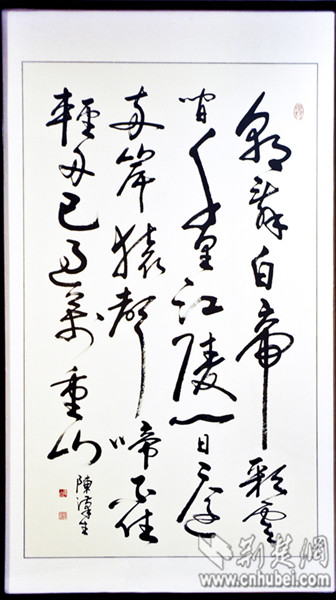 朝辭白帝彩雲
間千里江陵一日還
兩岸猿聲啼不住
輕舟已過萬重山
荆楚網
www.cnhubei.com